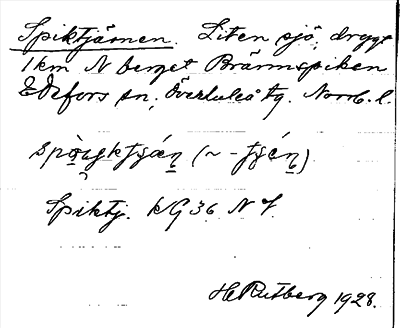 Spiktjärnen. Liten sjö, drygt
1 km N berget Brännspiken
Edefors sn, Överluleå tg. Norrb. l.
Spiktj. kG 36 N V.
H Rutberg 1928.